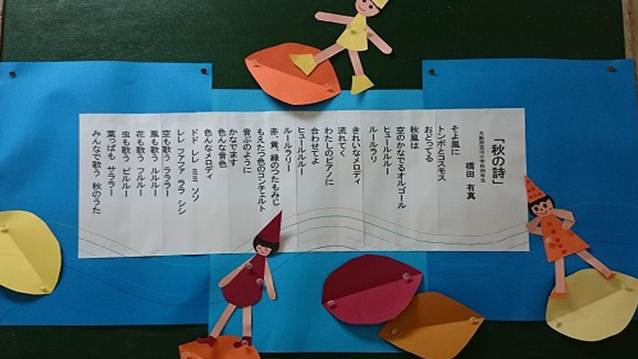 「秋の詩」
横田 有真
そよ風に
トンボとコスモス
おどってる
秋風は
空のかなでるオルゴール
ヒュールルルー
ルールラリ
きれいなメロディ
流れてく
わたしのピアノに
合わせてよ
ヒュールルルー
ルールラリー
赤、黄、緑のつたもみじ
もえたつ色のコンチェルト
音ぷのように
かなでます
色んな音色
色んなメロディ
ドド レレ ミミ ソソ
レレ ファファ ララ シシ
空も歌う ラララー
風も歌う ルルルー
花も歌う フルルー
虫も歌う ピルルー
葉っぱも サララー
みんなで歌う 秋のうた